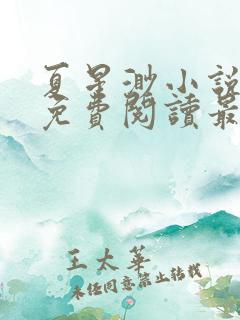 夏星渺小說
免費閱讀最
王太華
未經同意禁止轉載